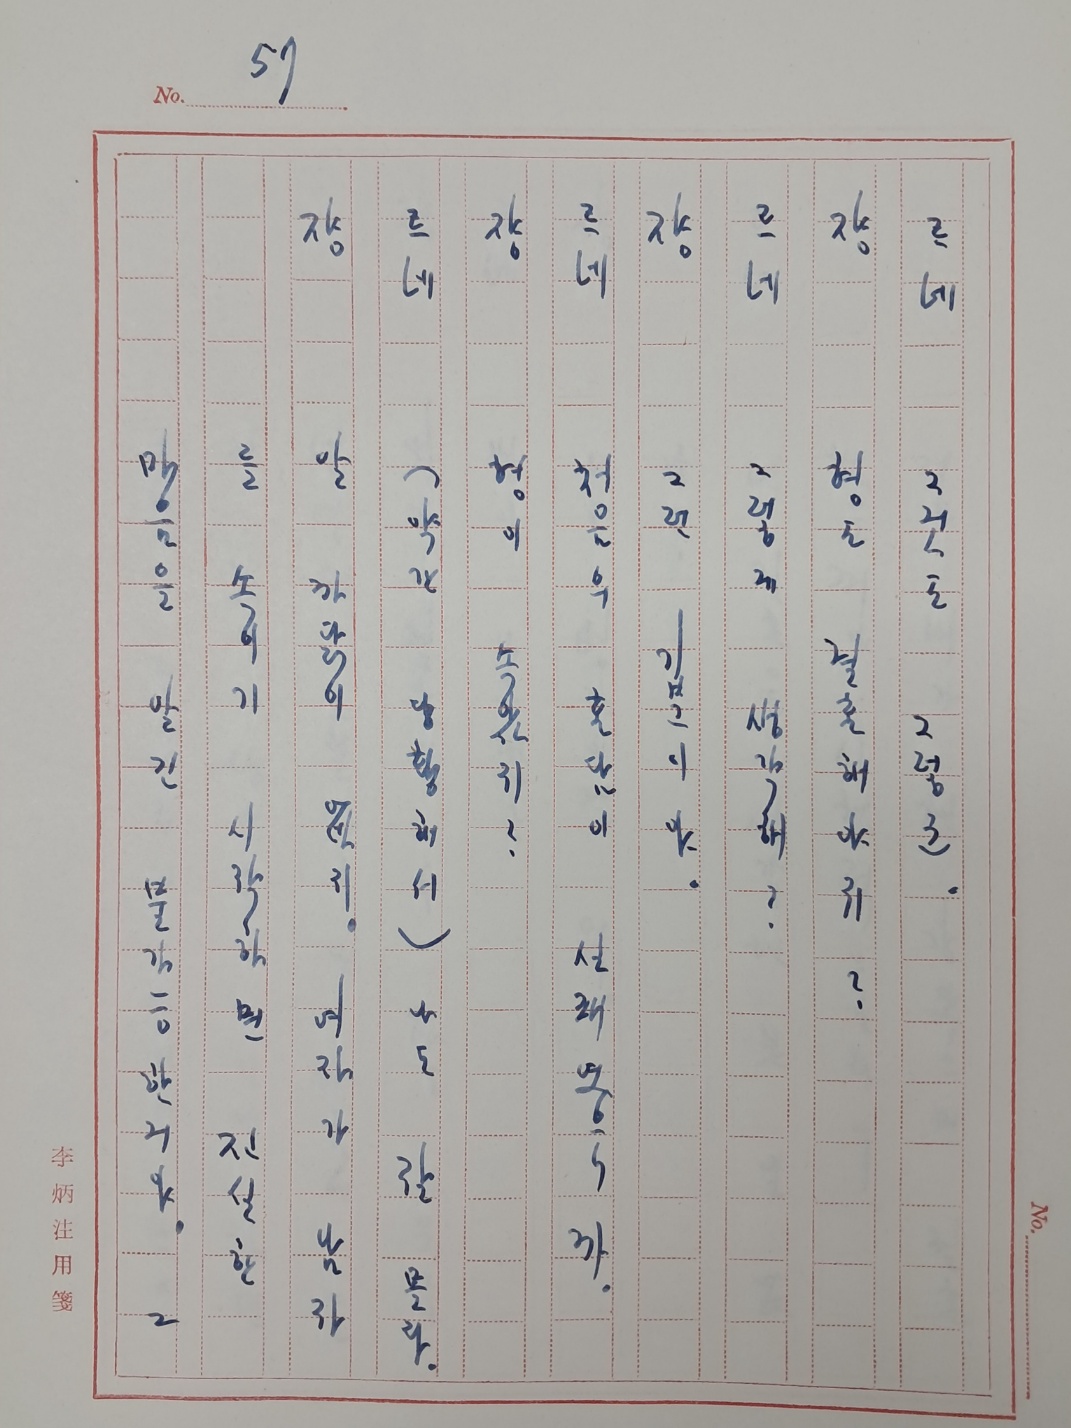 No. 57
르네 그것도 그렇군.
장 형도 결혼해야지?
르네 그렇게 생각해?
장 그런 기분이야.
르네 처음은 우 혼담의 선택 으니까.
장 형의 소원지?
르네 (약간 당황해서) 나도 잘 몰라.
장 알 까닭이 없지. 여자가 남자
를 속이기 시작하면 진실한
맹 을 말 건 불가능한 거야. 그
李炳注用箋
No.